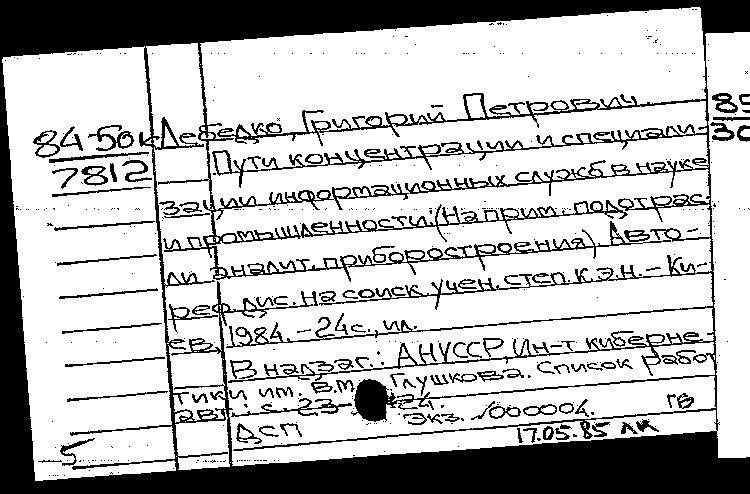 84-50к Лебедко, Григорий Петрович.
7812 Пути концентрации и специали-
зации информационных служб в науке
и промышленности: (На прим. подотрас-
ли аналит. приборостроения). Авто-
реф. дис. на соиск. учен. степ. к.э.н. – Ки-
ев, 1984. – 24 с., ил.
В надзаг.: АН УССР, Ин-т киберне-
тики им. В.М. Глушкова. Список работ
авт.: с. 23-24.
Экз. №000004.
ДСП
ГВ
17.05.85 ЛК
5
85
30